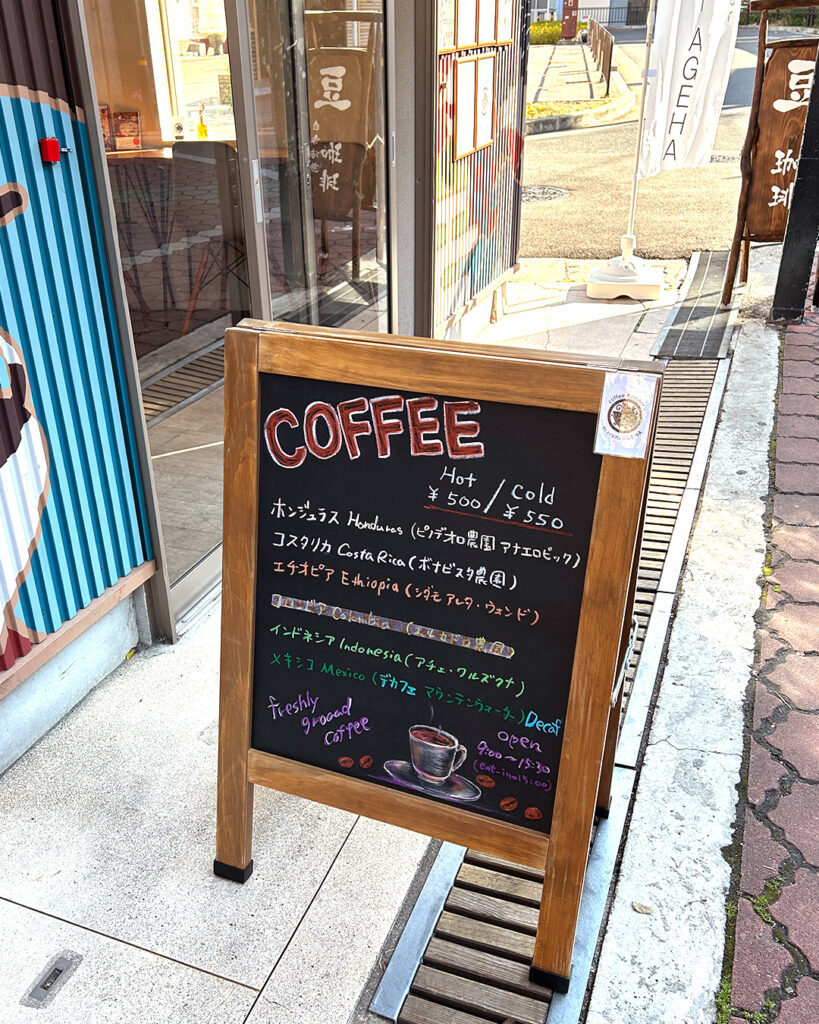 COFFEE
Hot / Cold
¥500 / ¥550
ホンジュラス Honduras (ピノデオロ農園 アナエロビック)
コスタリカ Costa Rica (ボナビスタ農園)
エチオピア Ethiopia (シダモ アレタ・ウォンド)
Colombia
インドネシア Indonesia (アチェ・ワルズワナ)
メキシコ Mexico (デカフェ マウンテンウォーター) Decaf
freshly
groaad
coffee
open
9:00~15:30
(eat-in 15:00)
Coffee
豆
珈
琲
AGEHA
豆
珈
琲